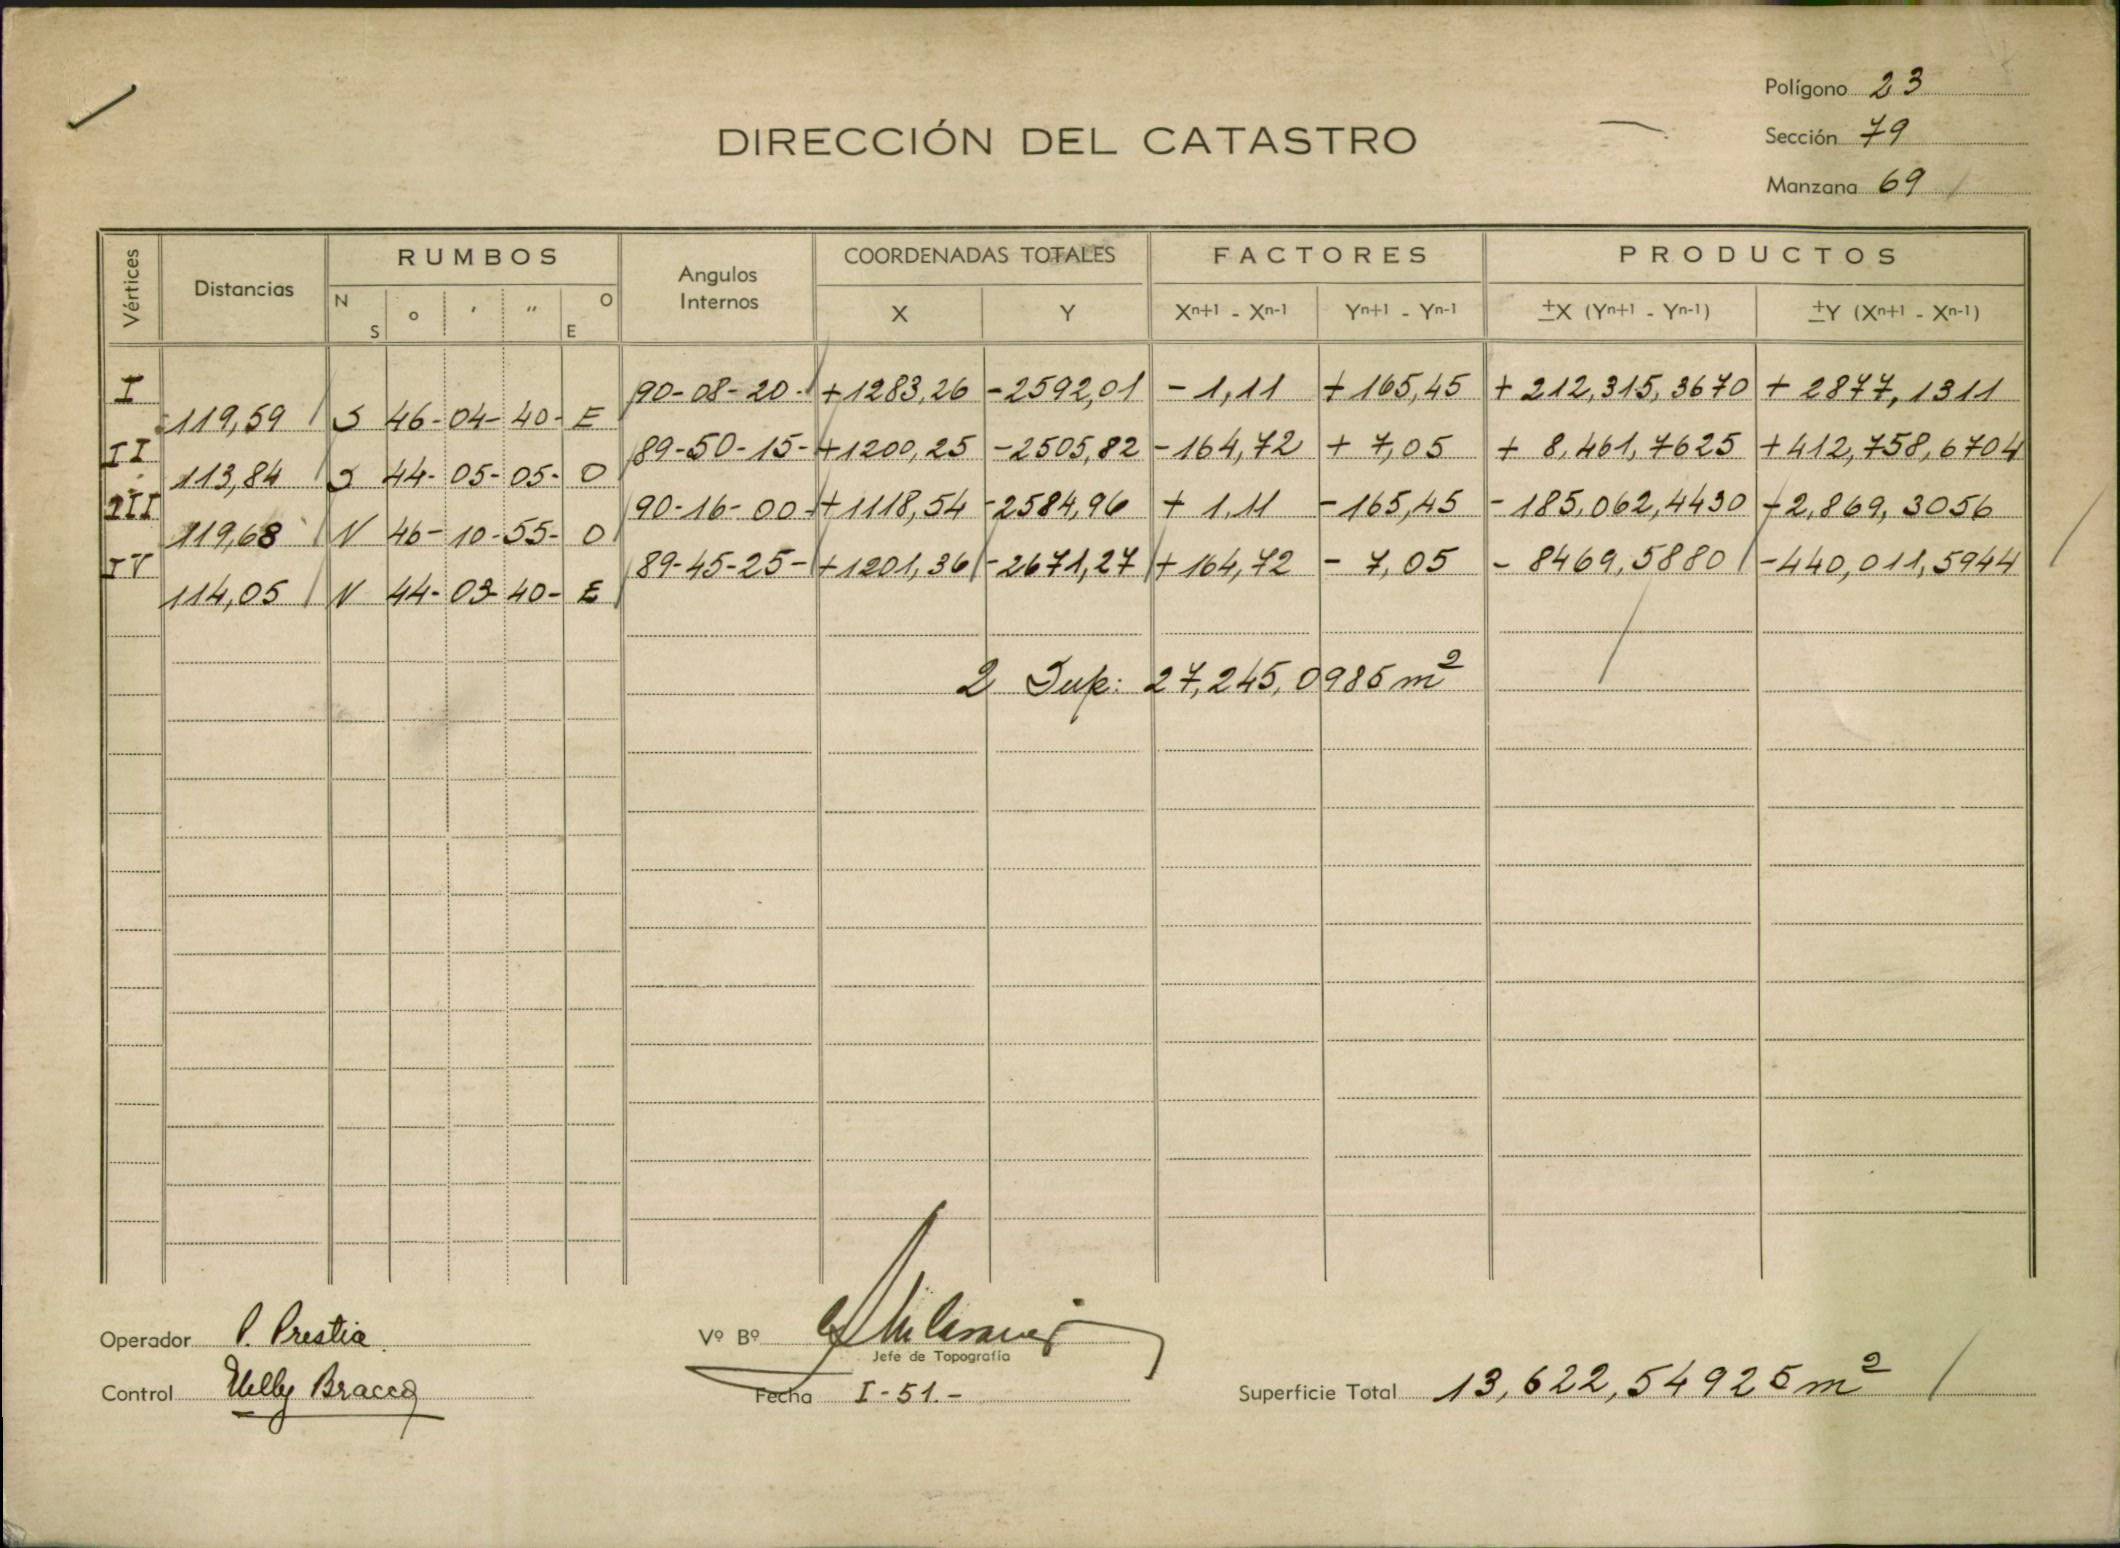 Polígono 23
DIRECCIÓN DEL CATASTRO
Sección 79
Manzana 69
Vértices Distancias RUMBOS Angulos Internos COORDENADAS TOTALES FACTORES PRODUCTOS
N S o ' " O E X Y Xn+1 - Xn-1 Yn+1 - Yn-1 ±X (Yn+1 - Yn-1) ±Y (Xn+1 - Xn-1)
I 90-08-20- +1283,26 -2592,01 -1,11 +165,45 +212,315,3670 +2877,1311
119,59 S 46-04-40- E
II 89-50-15- +1200,25 -2505,82 -164,72 +7,05 +8,461,7625 +412,758,6704
113,84 S 44-05-05- O
III 90-16-00- +1118,54 -2584,96 +1,11 -165,45 -185,062,4430 +2,869,3056
119,68 N 46-10-55- O
IV 89-45-25- +1201,36 -2671,27 +164,72 -7,05 -8469,5880 -440,011,5944
114,05 N 44-03-40- E
2 Sup: 27,245,0985 m²
Operador P. Prestia
Vº Bº
Jefe de Topografía
Control Nelly Bracco
Fecha I-51.-
Superficie Total 13,622,54925 m²